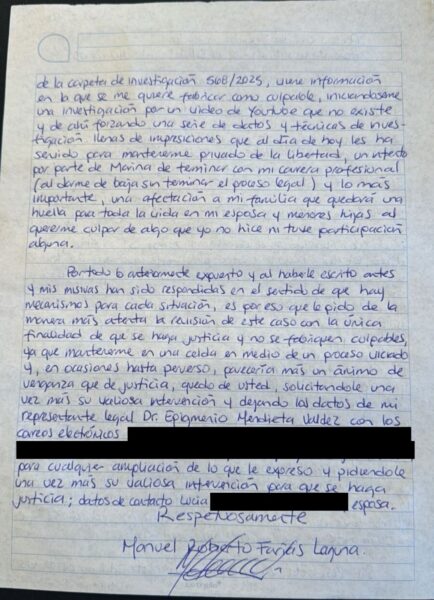 de la carpeta de investigación 568/2025, viene información
en lo que se me quiere fabricar como culpable, iniciandoseme
una investigación por un video de Youtube que no existe
y de ahí forzando una serie de datos y técnicas de inves-
tigación llenas de imprecisiones que al día de hoy les ha
servido para mantenerme privado de la libertad, un intento
por parte de Marina de terminar con mi carrera profesional
(al darme de baja sin terminar el proceso legal) y lo más
importante, una afectación a mi familia que quedará una
huella para toda la vida en mi esposa y menores hijas al
quererme culpar de algo que yo no hice ni tuve participación
alguna.
Por todo lo anteriormente expuesto y al haberle escrito antes
y mis misivas han sido respondidas en el sentido de que hay
mecanismos para cada situación, es por eso que le pido de la
manera más atenta la revisión de este caso con la única
finalidad de que se haga justicia y no se fabriquen culpables,
ya que mantenerme en una celda en medio de un proceso viciado
y, en ocasiones hasta perverso, parecería más un ánimo de
venganza que de justicia, quedo de usted, solicitandole una
vez más su valiosa intervención y dejando los datos de mi
representante legal Dr. Epigmenio Mendieta Valdez con los
correos electrónicos
para cualquier ampliación de lo que le expreso y pidiendole
una vez más su valiosa intervención para que se haga
justicia; datos de contacto Lucia esposa.
Respetuosamente
Manuel Roberto Farías Laguna.